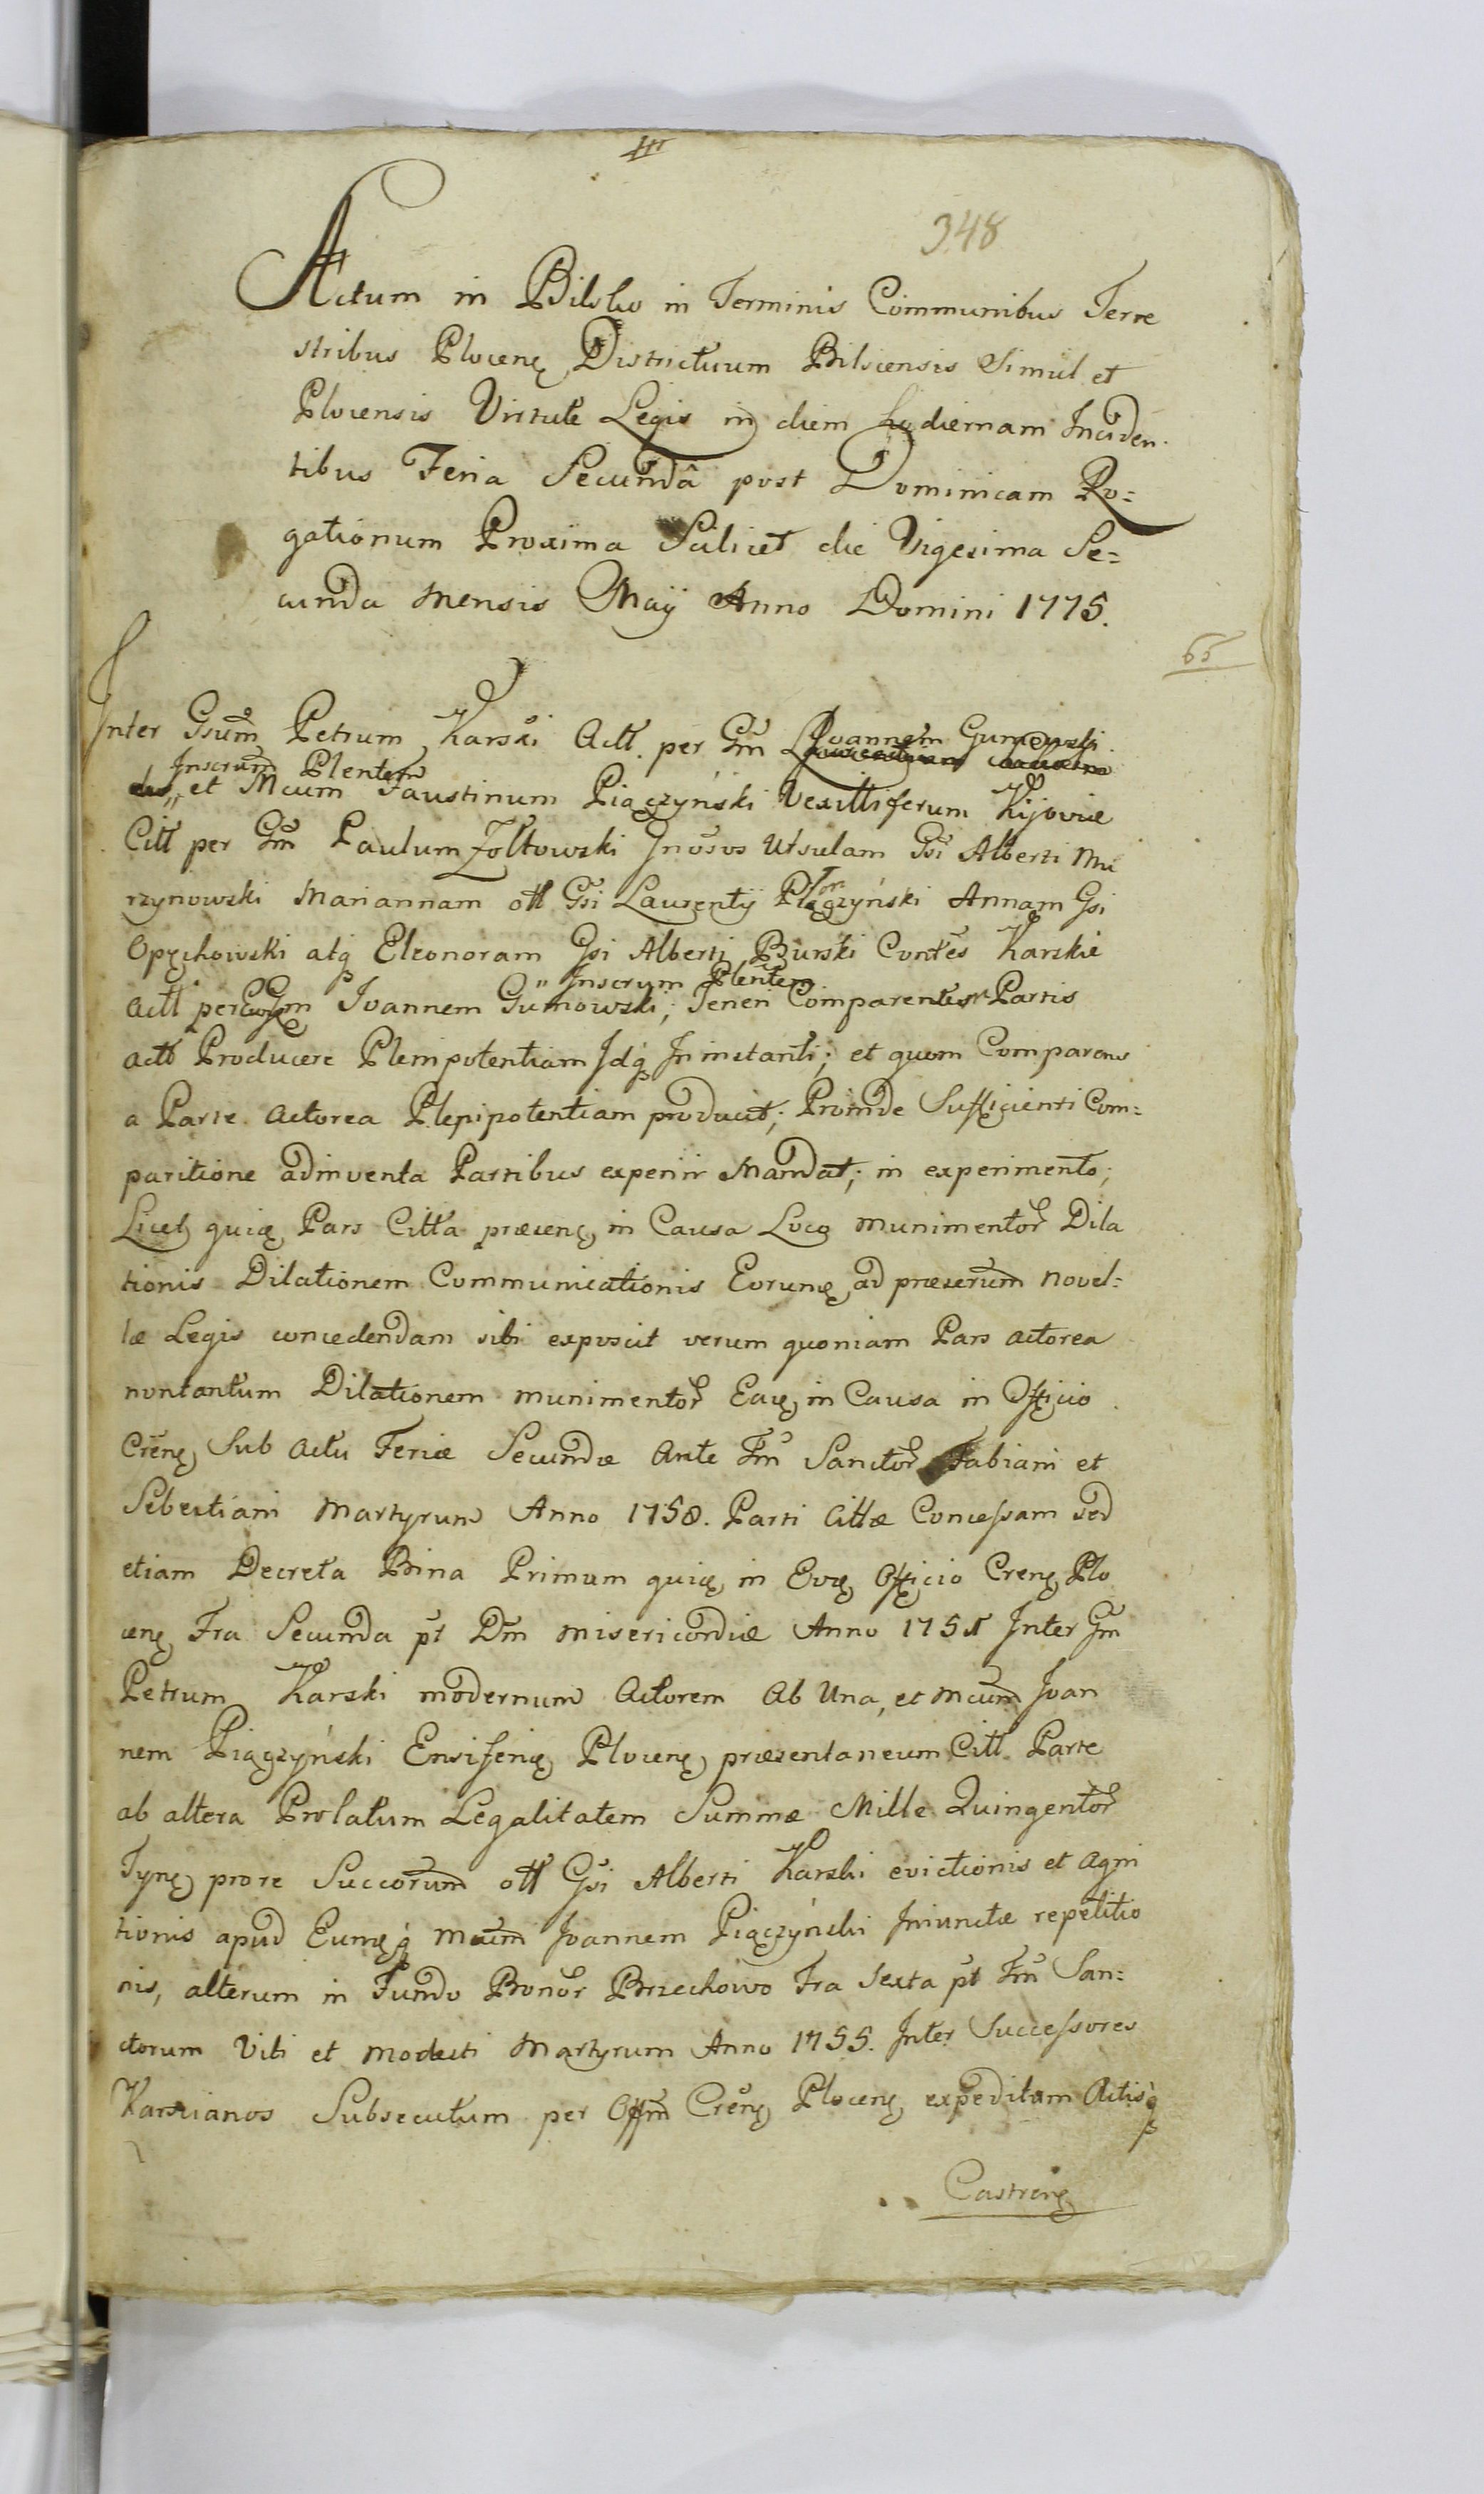 III
348
Actum in Bilsko in Terminis Communibus Terre
stribus Plocens Districtuum Bilscensis Simul et
Plocensis Virtute Legis in diem hodiernam Inciden-
tibus Feria Secundâ post Dominicam Ro=
gationum Proxima Scilicet die Vigesima Se=
cunda Mensis Maÿ Anno Domini 1775.
65
Inter Gsum Petrum Karski Actt. per Gm Joannem Gumowski
Inscrum Plentem
et Mcum Faustinum Piączyński Vexilliferum Kijoviæ
Citt per Gm Paulum Zołtowski Gnosos Ursulam Gsi Alberti Mu
rzynowski Mariannam ott Gsi Laurentÿ Piączyński Annam Gsi
Opęchowski atq Eleonoram Gsi Alberti Burski Contes Karskie
" Inscrum Plentem
actt per Gm Joannem Gumowski; Teneri Comparentes Partis
actt Producere Plenipotentiam Idq Ininstanti; et quom Comparens
a Parte Actorea Plenipotentiam producit; Proinde Sufficienti Com=
paritione adinventa Partibus experiri Mandat; in experimento;
Licet quid Pars Citta præsens in Causa Loco munimentor Dila
tionis Dilationem Communicationis Eorund ad præscrum novel=
læ Legis concedendam sibi exposcit verum quoniam Pars actorea
nontantum Dilationem munimentor Ead in Causa in Officio
Crens Sub Actu Feriæ Secundæ Ante Fm Sanctor Fabiani et
Sebestiani Martyrum Anno 1758. Parti Cittæ Concessam sed
etiam Decreta Bina Primum quid in Eod Officio Crens Plo
cens Fra Secunda pt Dm Misericordiæ Anno 1751 Inter Gm
Petrum Karski modernum Actorem Ab Una, et Mcum Joan
nem Piączyński Ensiferum Plocens præsentaneum Citt. Parte
ab altera Prolatum Legalitatem Summæ Mille Quingentor
Tynf pro re Succorum ott Gsi Alberti Karski evictionis et agni
tionis apud Eundq Mcum Joannem Piączyński Iniunctæ repetitio
nis, alterum in Fundo Bonor Brzechowo Fra Sexta pt Fm San=
ctorum Viti et Modesti Martyrum Anno 1755. Inter Successores
Karscianos Subsecutum per Offm Crens Plocens expeditam Actisq
Castrens